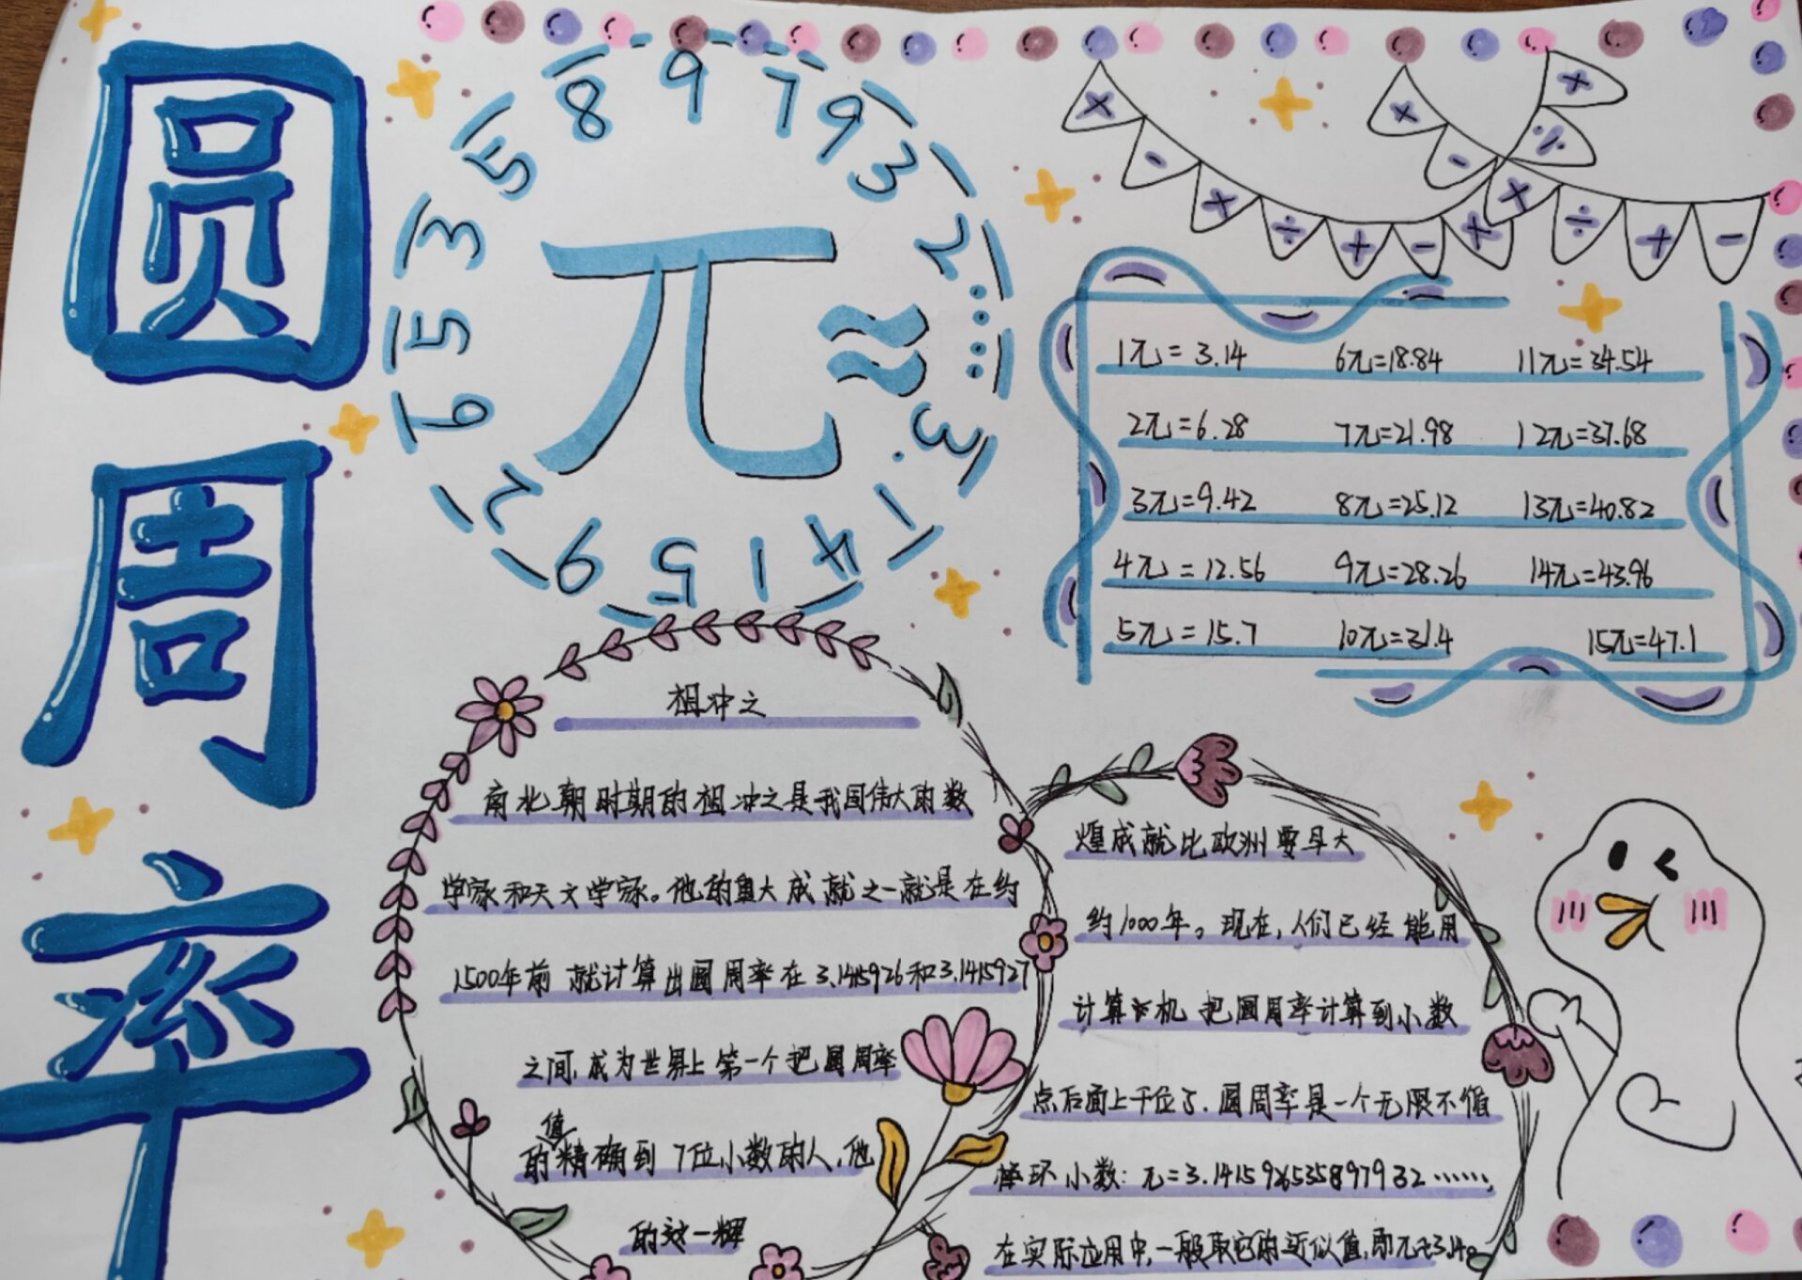 圆周率
π≈
3.1415926535897932……
× - × ÷ + - × + ÷ + -
× - × ÷ +
1π=3.14 6π=18.84 11π=34.54
2π=6.28 7π=21.98 12π=37.68
3π=9.42 8π=25.12 13π=40.82
4π=12.56 9π=28.26 14π=43.96
5π=15.7 10π=31.4 15π=47.1
祖冲之
南北朝时期的祖冲之是我国伟大的数
学家和天文学家。他的重大成就之一就是在约
1500年前就计算出圆周率在3.1415926和3.1415927
之间,成为世界上第一个把圆周率
的值精确到7位小数的人,他
的这一辉
煌成就比欧洲要早大
约1000年。现在,人们已经能用
计算机把圆周率计算到小数
点后面上千位了.圆周率是一个无限不循
环小数:π=3.141592653589 7932……,
在实际应用中,一般取它的近似值,即π≈3.14。